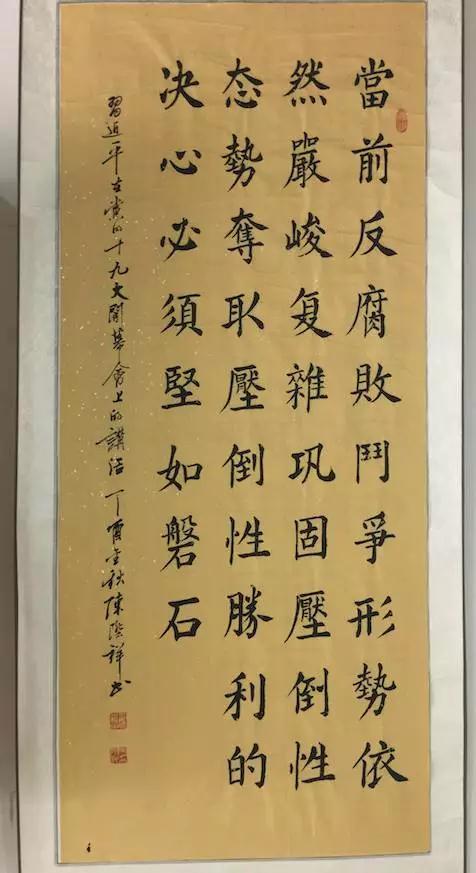 當前反腐敗鬥爭形勢依
然嚴峻复雜巩固壓倒性
态勢奪取壓倒性勝利的
决心必須堅如磐石
習近平在党的十九大開幕會上的講话 丁酉金秋陳 祥书